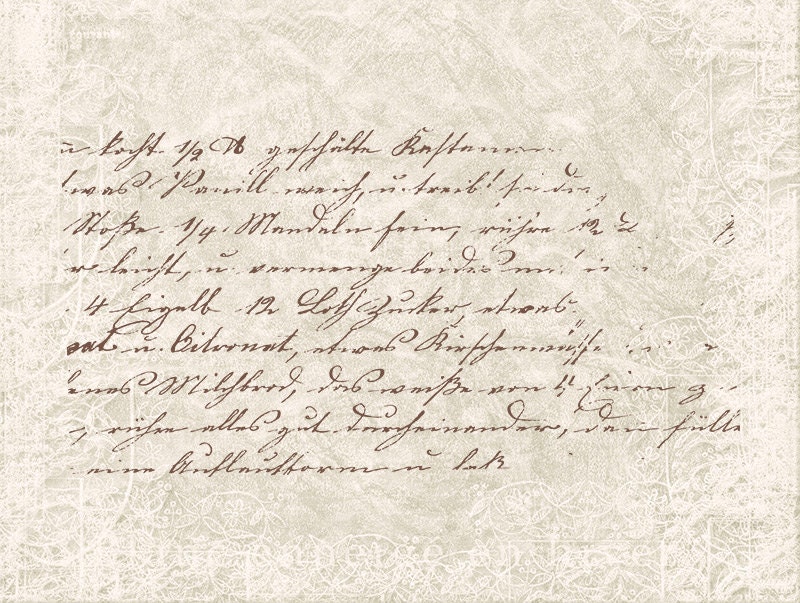 kocht 1/2 ℔ geschälte Kastanien
was Vanill weich, u. treib!
Stoße 1/4 Mandeln fein, rühre 12
leicht, u. vermenge beides
4 Eigelb 12 Loth Zucker, etwas
u. Citronat, etwas
Milchbrod, das weiße von
rühre alles gut durcheinander, dan fülle
eine Auflaufform u